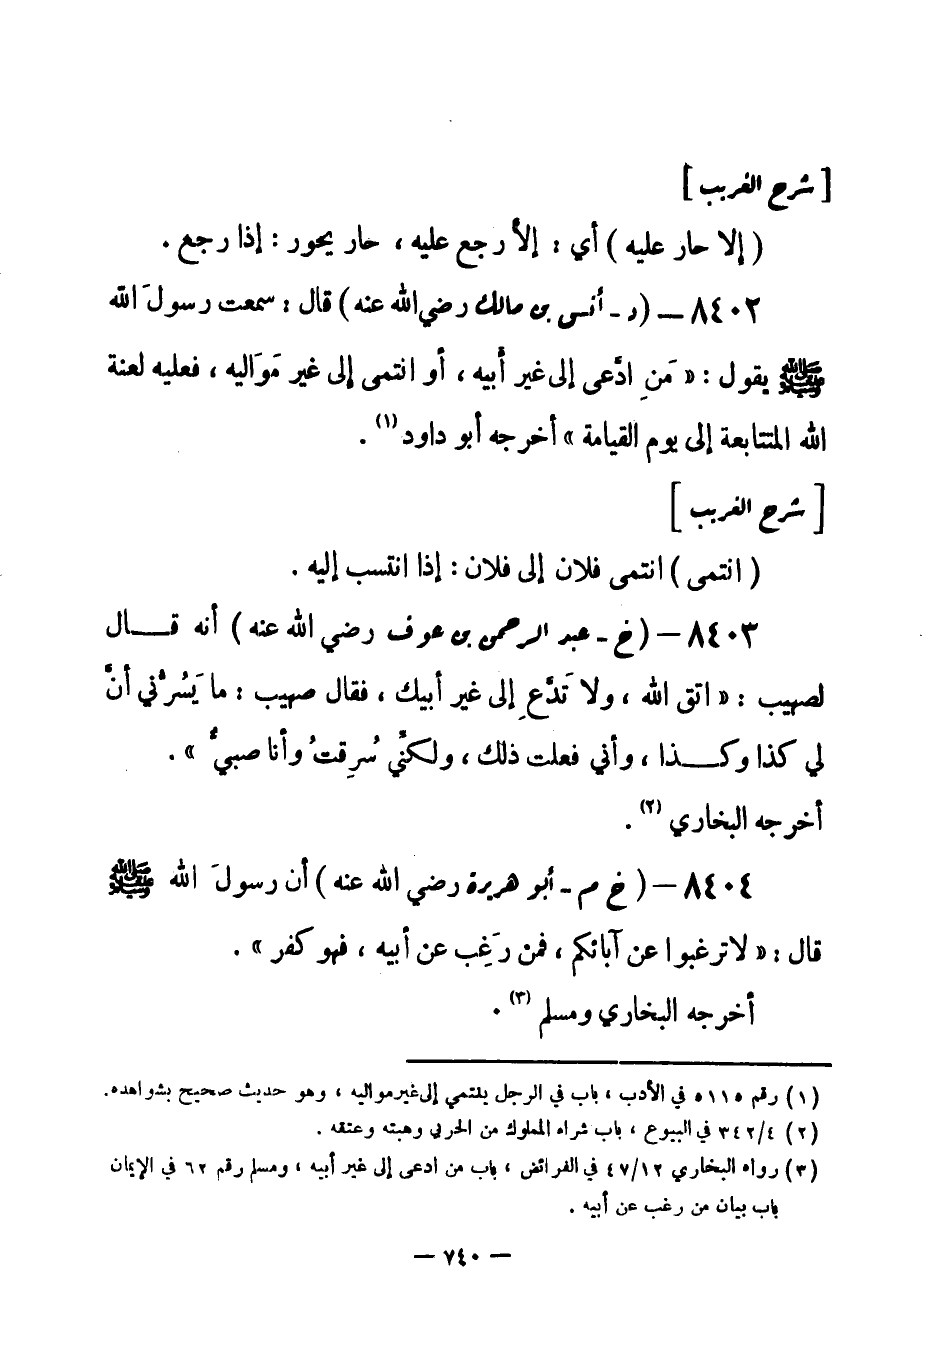 [ شرح الغريب ]
( إلا حار عليه ) أي : إلا رجع عليه ، حار يحور : إذا رجع .
٨٤٠٢ – (د - أنس بن مالك رضي الله عنه) قال : سمعت رسولَ الله
ﷺ يقول : « مَنِ ادَّعى إلى غير أبيه ، أو انتمى إلى غير مَوَاليه ، فعليه لعنة
الله المتتابعة إلى يوم القيامة » أخرجه أبو داود (١) .
[ شرح الغريب ]
( انتمى ) انتمى فلان إلى فلان : إذا انتسب إليه .
٨٤٠٣ – (خ - عبد الرحمن بن عوف رضي الله عنه ) أنه قـــال
لصهيب : « اتق الله ، ولا تَدَّعِ إلى غير أبيك ، فقال صهيب : ما يَسُرُّني أنَّ
لي كذا وكـــذا ، وأني فعلت ذلك ، ولكنِّي سُرِقتُ وأنا صبيٌّ » .
أخرجه البخاري (٢) .
٨٤٠٤ – ( خ م - أبو هريرة رضي الله عنه ) أن رسولَ الله ﷺ
قال : « لا ترغبوا عن آبائكم ، فمن رَغِب عن أبيه ، فهو كفر » .
أخرجه البخاري ومسلم (٣) .
(١) رقم ٥١١٥ في الأدب ، باب في الرجل ينتمي إلى غير مواليه ، وهو حديث صحيح بشواهده.
(٢) ٣٤٢/٤ في البيوع ، باب شراء المملوك من الحربي وهبته وعتقه .
(٣) رواه البخاري ٤٧/١٢ في الفرائض ، باب من ادعى إلى غير أبيه ، ومسلم رقم ٦٢ في الإيمان
باب بيان من رغب عن أبيه .
– ٧٤٠ –